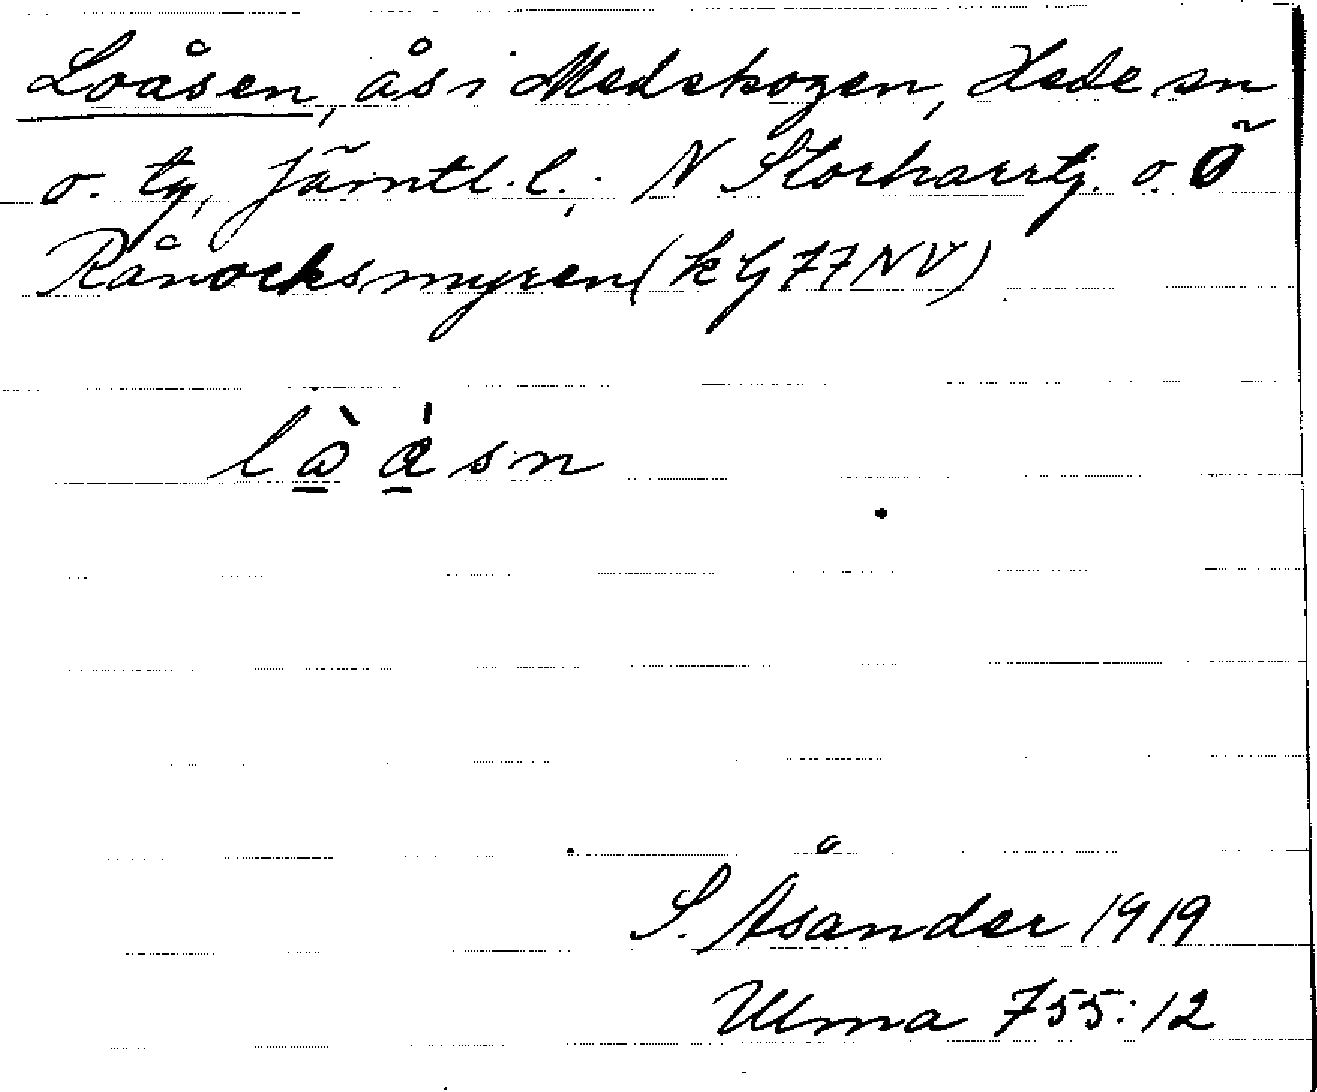 Loåsen, ås i Medskogen, Hede sn
o. tg, Jämtl. l.; N Storharrtj. o. Ö
Rånocksmyren (k G 77 NV)
S. Åsander 1919
Ulma 755:12